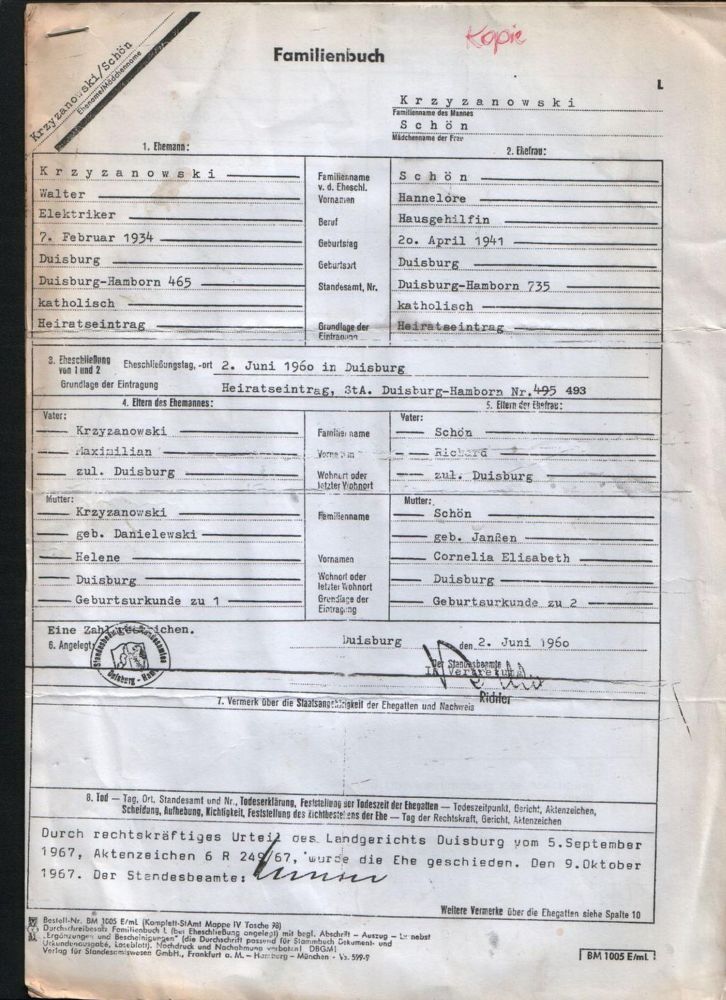 Krzyzanowski/Schön
Ehename/Mädchenname
Familienbuch
Kopie
L
Krzyzanowski
Familienname des Mannes
Schön
Mädchenname der Frau
1. Ehemann:
2. Ehefrau:
Krzyzanowski Familienname v. d. Eheschl. Schön
Walter Vornamen Hannelore
Elektriker Beruf Hausgehilfin
7. Februar 1934 Geburtstag 20. April 1941
Duisburg Geburtsort Duisburg
Duisburg-Hamborn 465 Standesamt, Nr. Duisburg-Hamborn 735
katholisch katholisch
Heiratseintrag Grundlage der Eintragung Heiratseintrag
3. Eheschließung von 1 und 2 Eheschließungstag, -ort 2. Juni 1960 in Duisburg
Grundlage der Eintragung Heiratseintrag, StA. Duisburg-Hamborn Nr. 495 493
4. Eltern des Ehemannes: 5. Eltern der Ehefrau:
Vater: Vater:
Krzyzanowski Familienname Schön
Maximilian Vornamen Richard
zul. Duisburg Wohnort oder letzter Wohnort zul. Duisburg
Mutter: Mutter:
Krzyzanowski Familienname Schön
geb. Danielewski geb. Janßen
Helene Vornamen Cornelia Elisabeth
Duisburg Wohnort oder letzter Wohnort Duisburg
Geburtsurkunde zu 1 Grundlage der Eintragung Geburtsurkunde zu 2
Eine Zahl gestrichen.
6. Angelegt Duisburg den 2. Juni 1960
Der Standesbeamte
In Vertretung
Richter
Duisburg - Ham
7. Vermerk über die Staatsangehörigkeit der Ehegatten und Nachweis
8. Tod — Tag, Ort, Standesamt und Nr., Todeserklärung, Feststellung der Todeszeit der Ehegatten — Todeszeitpunkt, Gericht, Aktenzeichen,
Scheidung, Aufhebung, Nichtigkeit, Feststellung des Nichtbestehens der Ehe — Tag der Rechtskraft, Gericht, Aktenzeichen
Durch rechtskräftiges Urteil des Landgerichts Duisburg vom 5.September
1967, Aktenzeichen 6 R 249/67, wurde die Ehe geschieden. Den 9.Oktober
1967. Der Standesbeamte:
Weitere Vermerke über die Ehegatten siehe Spalte 10
Bestell-Nr. BM 1005 E/mL (Komplett-StAmt Mappe IV Tasche 98)
Durchschreibesatz Familienbuch L (bei Eheschließung angelegt) mit begl. Abschrift - Auszug - L nebst
„Ergänzungen und Bescheinigungen" (die Durchschrift passend für Stammbuch Dokument- und
Urkundenausgabe, Loseblatt). Nachdruck und Nachahmung verboten! DBGM!
Verlag für Standesamtswesen GmbH., Frankfurt a. M. - Hamburg - München - Vs. 599-9
BM 1005 E/mL